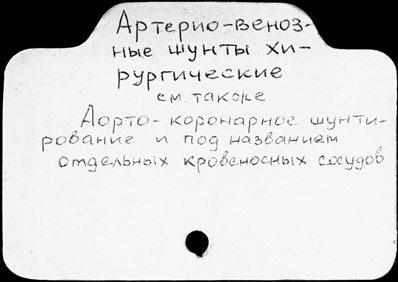 Артерио-веноз-
ные шунты хи-
рургические
см. также
Аорто-коронарное шунти-
рование и под названием
отдельных кровеносных сосудов